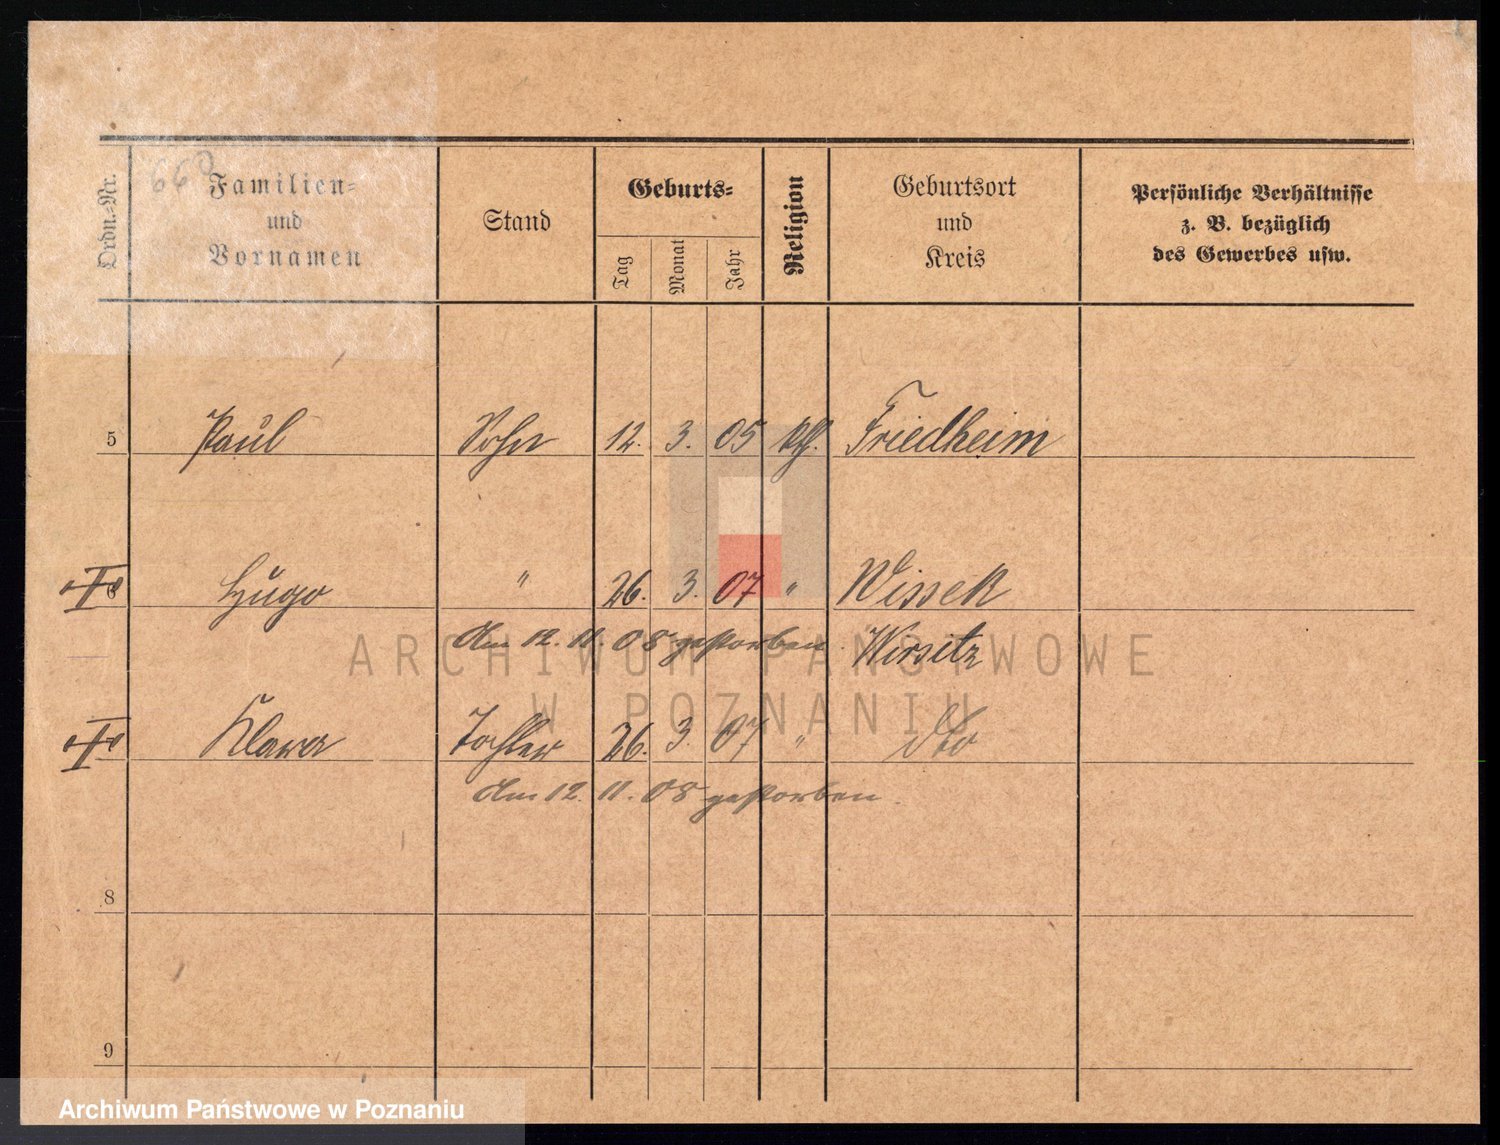 Ordn.-Nr.
Familien-
und
Vornamen
Stand
Geburts-
Tag
Monat
Jahr
Religion
Geburtsort
und
Kreis
Persönliche Verhältnisse
z. B. bezüglich
des Gewerbes usw.
5 Paul Sohn 12. 3. 05 kth. Friedheim
6 Hugo " 26. 3. 07 " Wissek
Am 12. 11. 08 gestorben. Wirsitz
Klara Tochter 26. 3. 07 " dto
Am 12. 11. 08 gestorben.
8
9
ARCHIWUM PAŃSTWOWE
W POZNANIU
Archiwum Państwowe w Poznaniu